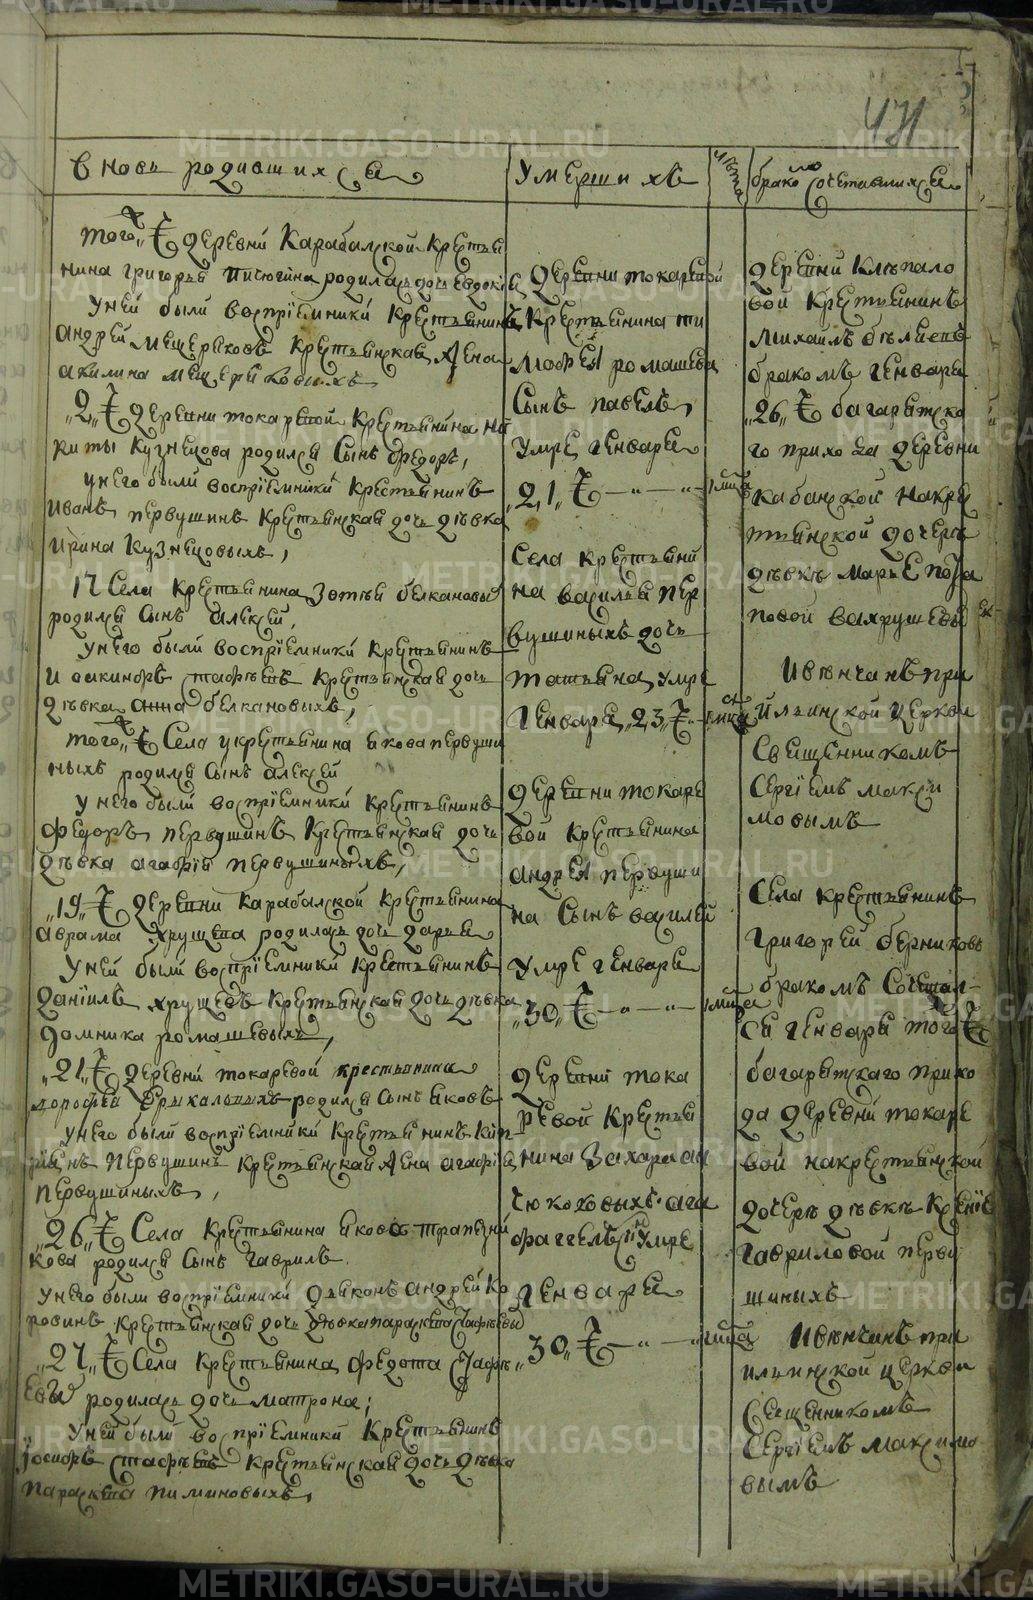 471
вновь родившихся
того ж деревни Карабалской крестья
нина григорья родилась дочь евдокия
у ней были восприемники крестьянинъ
андрей мещеряковъ крестьянская жена
акилина мещеряковыхъ
„2„ ж деревни токаревой крестьянина ни
киты кузнецова родился сынъ федоръ,
у него были восприемники крестьянинъ
иванъ первушинъ крестьянская дочь дѣвка
ирина кузнецовыхъ,
17 села крестьянина зотѣя белкановыхъ
родился сынъ алексей,
у него были восприемники крестьянинъ
дѣвка анна белкановыхъ,
того ж села крестьянина якова первуши
ныхъ родился сынъ алексей
у него были восприемники крестьянинъ
федоръ первушинъ крестьянская дочь
дѣвка агафия первушиныхъ,
„19„ ж деревни карабалской крестьянина
аврама хрущева родилась дочь дарья
у ней были восприемники крестьянинъ
данiилъ хрущевъ крестьянская дочь дѣвка
домника ромашевыхъ,
„21„ ж деревни токаревой крестьянина
дорофея брыкальныхъ родился сынъ яковъ
у него были восприемники крестьянинъ кип
рiянъ первушинъ крестьянская жена агафiя
первушиныхъ,
„26„ ж села крестьянина якова трапезни
кова родился сынъ гаврилъ
у него были восприемники дьяконъ андрей ко
ровинъ крестьянская дочь дѣвка параскева
„27„ ж села крестьянина федота
родилась дочь матрона;
у ней были восприемники крестьянинъ
iосифъ крестьянская дочь дѣвка
параскева пилиновыхъ,
умершихъ
деревни токаревой
крестьянина ти
мофея ромашева
сынъ павелъ,
умре генваря
„21„ ж
села крестьяни
на василья пер
вушиныхъ дочь
татьяна умре
генваря „23„ ж
деревни токаре
вой крестьянина
андрея первуши
на сынъ василей
умре генваря
„30„ ж
деревни тока
ревой крестья
нина захара
умре
генваря
„30„ ж
лѣта
бракосочетавшихся
деревни клѣпало
вой крестьянинъ
михаилъ
бракомъ генваря
„26„ ж багарятска
го прихода деревни
кабанской на кре
стьянской дочерѣ
дѣвкѣ марье пота
повой вахрушевы
ивѣнчанъ при
ильинской церкви
священникомъ
сергiемъ макси
мовымъ
села крестьянинъ
григорей берниковъ
бракомъ сочетал
ся генваря того ж
багарятскаго прихо
да деревни токаре
вой на крестьянской
дочерѣ дѣвкѣ ксенiе
гавриловой перву
шиныхъ
ивѣнчанъ при
ильинской церкви
священникомъ
сергiемъ максимо
вымъ
METRIKI.GASO-URAL.RU